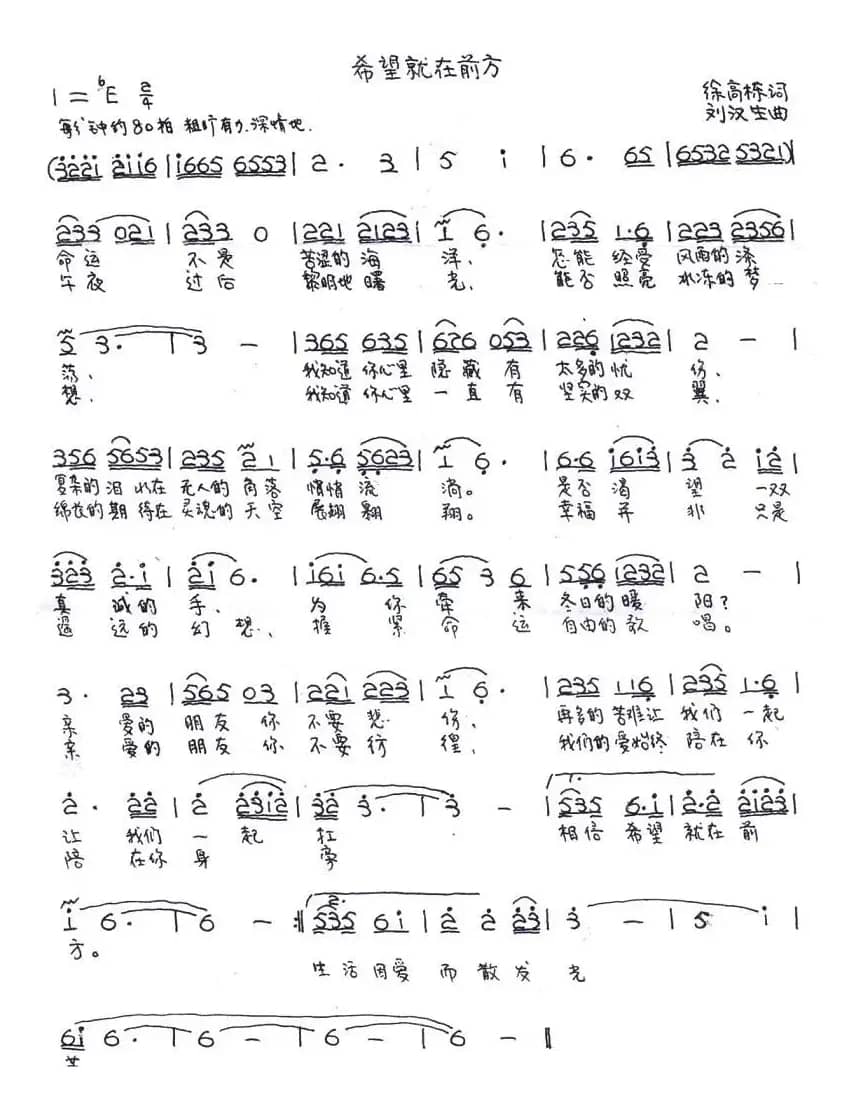 希望就在前方
1=♭E 2/4
徐高栋词
每分钟约80拍 粗旷有力、深情地.
刘汉生曲
(3221 2116|1665 6553|2· 3|5 i|6· 65|6532 5321)|
233 021|233 0|221 2123|1 6·|235 1·6|223 2356|
命运 不是 苦涩的海 洋、 怎能 经受 风雨的涤
午夜 过后 黎明地曙 光、 能否 照亮 冰冻的梦
5 3·|3 -|365 635|6726 053|226 1232|2 -|
荡、 我知道 你心里 隐藏 有 太多的忧 伤、
想. 我知道 你心里 一直 有 坚实的双 翼.
356 5653|235 21|5·6 5623|1 6·|6·6 i6i3|3 2 i2|
复杂的泪 水在 无人的角落 悄悄流 淌。 是否渴 望 一双
绵长的期 待在 灵魂的天空 展翅翱 翔。 幸福并 非 只是
323 2·i|2i 6·|i6i 6·5|65 3 6|556 1232|2 -|
真 诚的 手、 为 你 牵 来 冬日的暖 阳?
遥 远的 幻想、 握 紧 命 运 自由的歌 唱。
3· 23|565 03|221 223|1 6·|235 116|235 1·6|
亲 爱的 朋友 你 不要 悲 伤、 再多的苦难让 我们 一起
亲 爱的 朋友 你、 不要 彷 徨、 我们的爱始终 陪在你
2· 22|2 23i2|32 3·|3 -|535 6·i|2·2 2i23|
让 我们 一 起 扛 相信 希望 就在 前
陪 在你 身 旁
i 6·|6 -:‖535 6i|2 2 23|3 -|5 i|
方。
生活因爱 而散发 光
6i 6·|6 -|6 -|6 -‖
芒